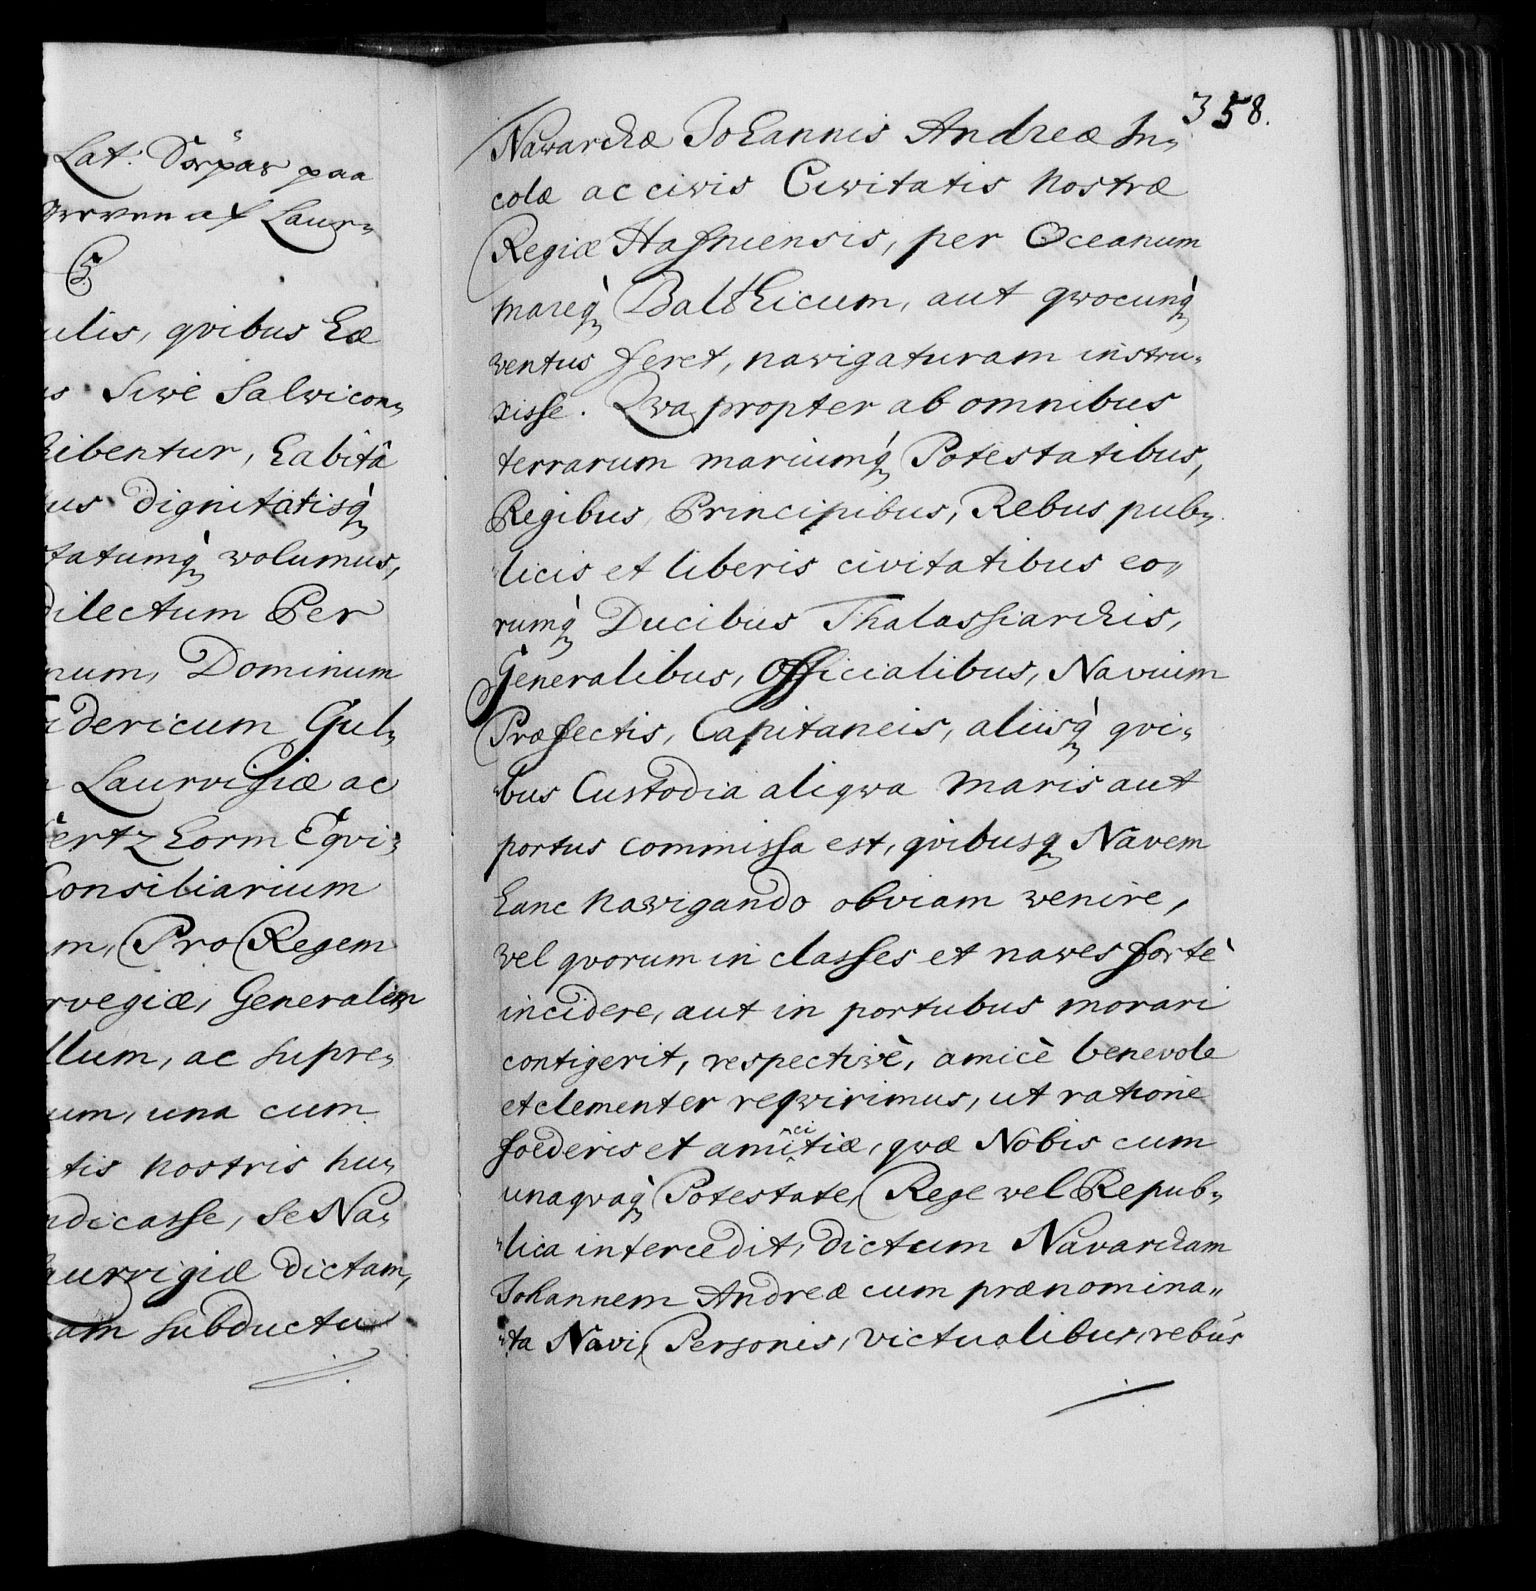 Lat: Söepas paa
Greven af Laur„
G
ulis, qvibus Eæ
s Sive Salvicon„
hibentur, habitâ
us dignitatisq̀
tatumq̀ volumus,
dilectum Per
num, Dominum
idericum Gul„
Laurvigiæ ac
hertzhorm Eqvi„
Consiliarium
m, Pro Regem
rvegiæ, Generalem
llum, ac supre„
um, una cum
tis nostris hu„
dicasse, se Na„
aurvigiæ dictam,
am subductu
358.
Navarchæ Johannis Andreæ In„
colæ ac civis Civitatis Nostræ
Regiæ Hafniensis, per Oceanum
mareq̀ Balthicum, aut qvocunq̀
ventus feret, navigaturam instru„
xisse. Qva propter ab omnibus
terrarum mariumq̀ Potestatibus,
Regibus, Principibus, Rebus pub„
licis et liberis civitatibus eo„
rumq̀ Ducibus Thalassiarchis,
Generalibus, Officialibus, Navium
Præfectis, Capitaneis, aliisq̀ qvi„
bus Custodia aliqva maris aut
portus commissa est, qvibusq Navem
hanc navigando obviam venire,
vel qvorum in classes et naves fortè
incidere, aut in portubus morari
contigerit, respectivè, amicè benevole
et clementer reqvirimus, ut ratione
foederis et amicitiæ, qvæ Nobis cum
unaqvaq̀ Potestate, Rege vel Repub„
„lica intercedit, dictum Navarcham
Johannem Andreæ cum prænomina„
„ta Navi, Personis, victualibus, rebus